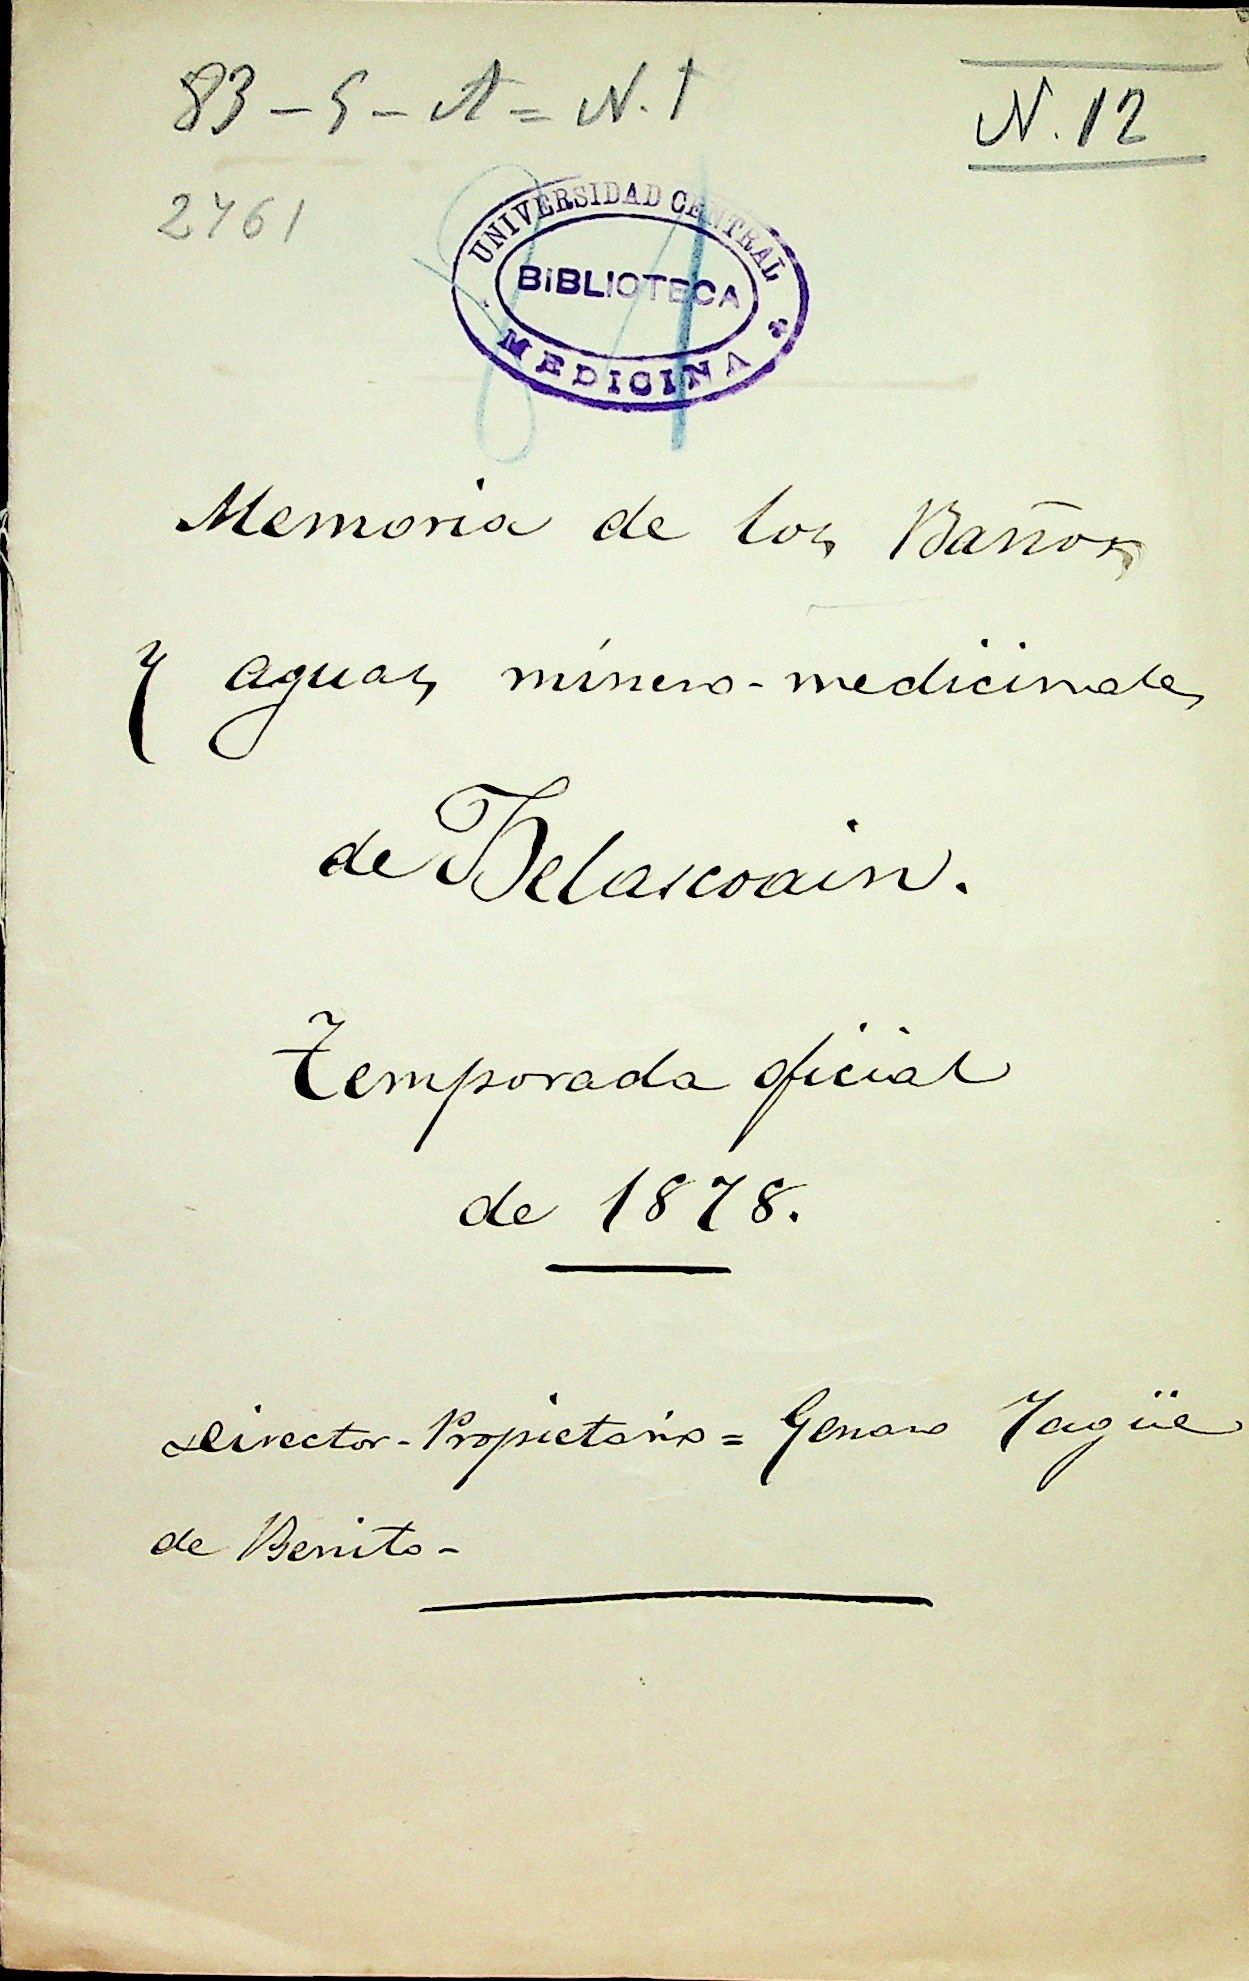 83-5-A=N.1
N.12
2461
UNIVERSIDAD CENTRAL
BIBLIOTECA
MEDICINA
Memoria de los Baños
y aguas minero-medicinales
de Belascoain.
Temporada oficial
de 1878.
Director-Propietario= Genaro Yagüe
de Benito-